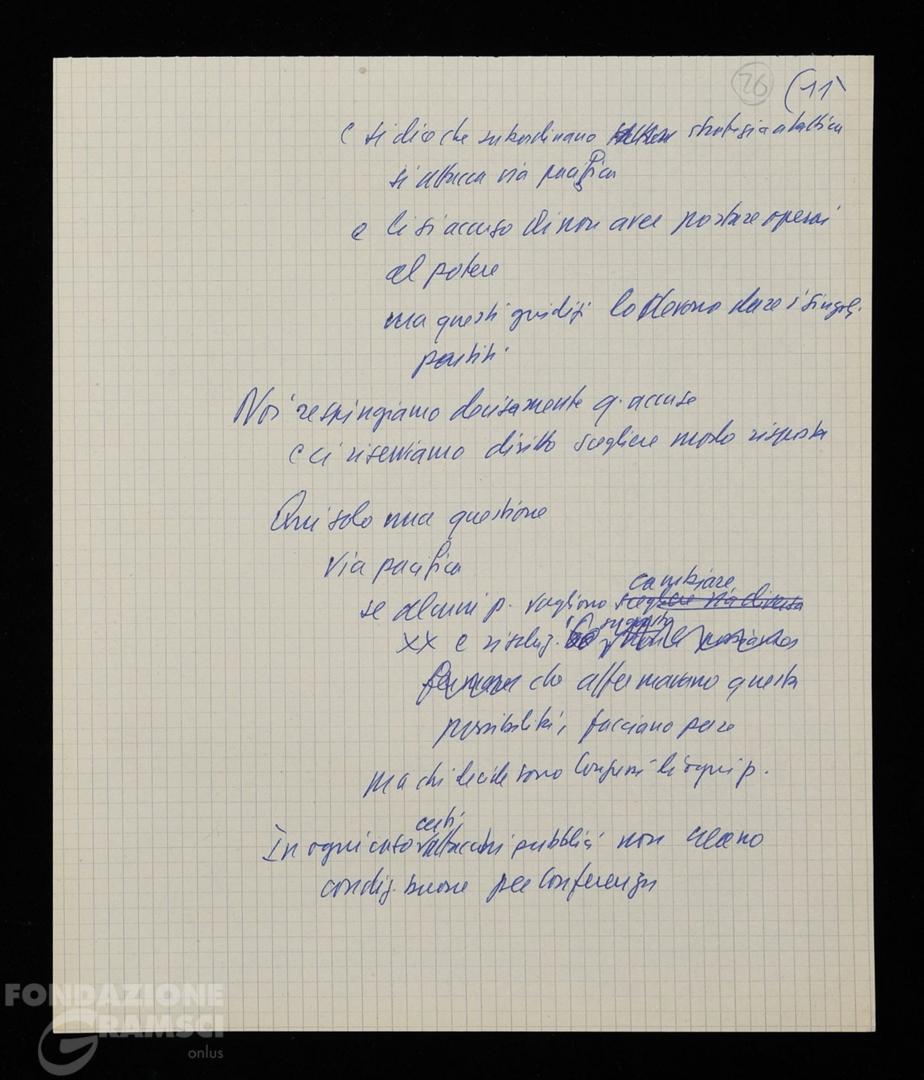 26 (11)
e si dice che subordinano strategia a tattica
si attacca via pacifica
e li si accusa di non aver portare operai
al potere
ma questi giudizi lo devono dare i singoli
partiti
Noi respingiamo decisamente q. accuse
e ci riserviamo diritto scegliere modo risposta
Qui solo una questione
via pacifica
cambiare
se alcuni p. vogliono scegliere via diversa
XX e risoluz.
che affermavano questa
possibilità, facciano pure
ma chi decide sono Congressi di ogni p.
certi
In ogni caso attacchi pubblici non creano
condiz. buone per Conferenza
FONDAZIONE
GRAMSCI
onlus